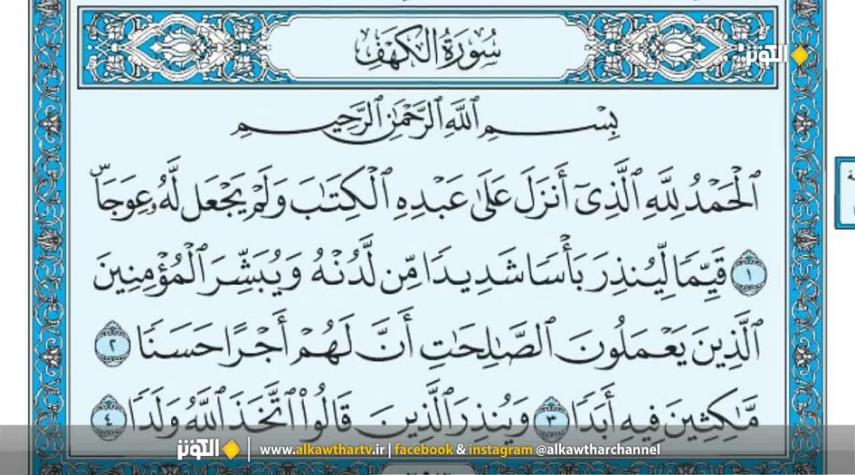 الكوثر
سُورَةُ الكَهْفِ
بِسْمِ اللَّهِ الرَّحْمَٰنِ الرَّحِيمِ
الْحَمْدُ لِلَّهِ الَّذِىٓ أَنزَلَ عَلَىٰ عَبْدِهِ الْكِتَٰبَ وَلَمْ يَجْعَل لَّهُۥ عِوَجَاۜ
١ قَيِّمًا لِّيُنذِرَ بَأْسًا شَدِيدًا مِّن لَّدُنْهُ وَيُبَشِّرَ الْمُؤْمِنِينَ
الَّذِينَ يَعْمَلُونَ الصَّٰلِحَٰتِ أَنَّ لَهُمْ أَجْرًا حَسَنًا ٢
مَّٰكِثِينَ فِيهِ أَبَدًا ٣ وَيُنذِرَ الَّذِينَ قَالُوا۟ اتَّخَذَ اللَّهُ وَلَدًا ٤
الكوثر www.alkawthartv.ir | facebook & instagram @alkawtharchannel